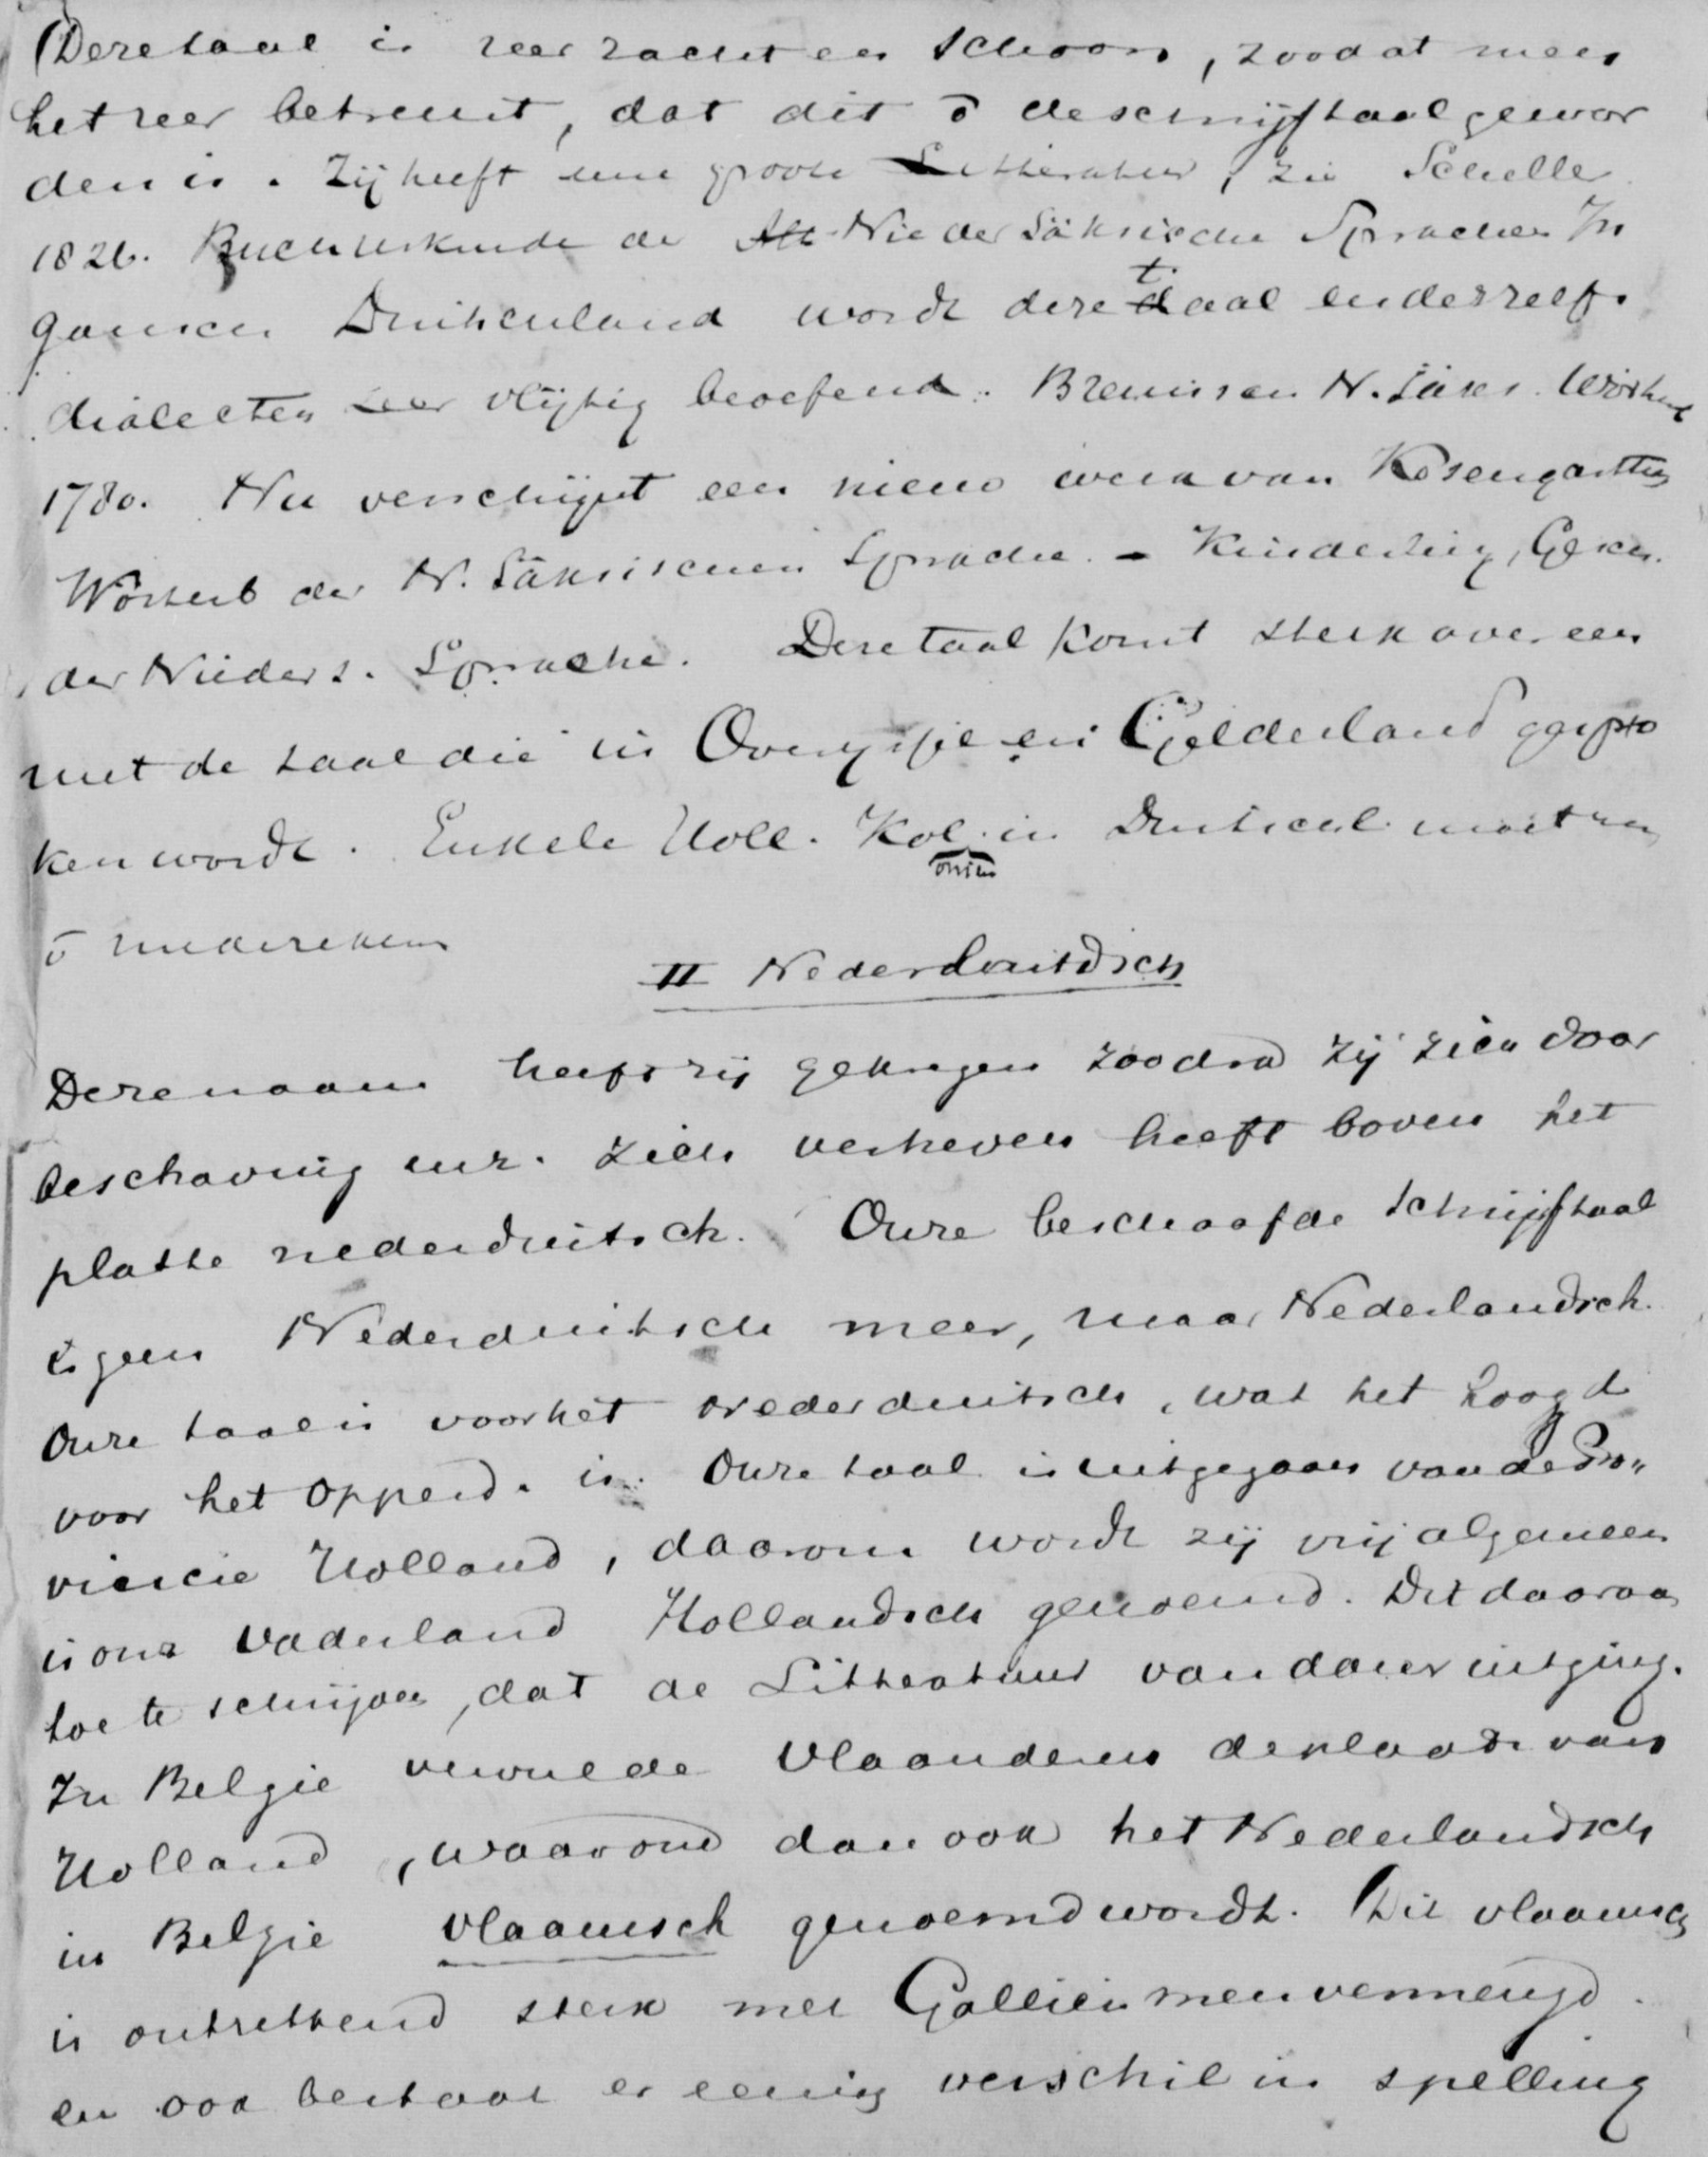 Deze taal is zeer zacht en schoon, zoodat men
het zeer betreurt, dat dit ō de schrijftaal gewor
den is. Zij heeft eene groote Litteratuur, zie Scheller
1826. Bucherkunde der Nieder Säksische Sprachen In
gansch Duitschland wordt deze taal en derzelfs
dialecten zeer vlijtig beoefend. Bremisch N. Säxs. Wörterb
1780. Nu verschijnt een nieuw werk van Kosengarten
Wörterb der N. Säksischen Sprache. - Kinderling, Gesch.
der Nieders. Sprache. Deze taal komt sterk over een
met de taal die in Overijsel en Gelderland gespro
ken wordt. Enkele Holl. Kolonien in Duitschl. moet men
ō mederekenen
II Nederduitsch
Deze naam heeft zij gekregen zoodra zij zich door
beschaving enz. zich verheven heeft boven het
platte nederduitsch. Onze beschaafde schrijftaal
is geen Nederduitsch meer, maar Nederlandsch.
Onze taal is voor het nederduitsch, wat het hoogd
voor het opperd. is. Onze taal is uitgegaan van de Pro„
vincie Holland, daarom wordt zij vrij algemeen
in ons vaderland Hollandsch genoemd. Dit daaraan
toe te schrijven, dat de Litteratuur van daar uitging.
In Belgie vervulde Vlaanderen de plaats van
Holland, waarom dan ook het Nederlandsch
in Belgie vlaamsch genoemd wordt. Dit vlaamsch
is ontzettend sterk met Gallicismen vermengd.
en ook bestaat er eenig verschil in spelling